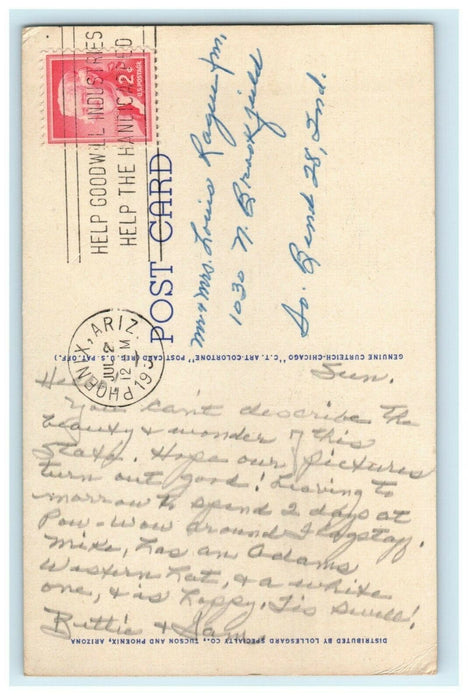 HELP GOODWILL INDUSTRIES
HELP THE HANDICAPPED
2¢
U.S. POSTAGE
PHOENIX, ARIZ
JUL 2
12 M
19
POST CARD
Mr & Mrs. Louis
1030 N. Brookfield
So. Bend 28, Ind.
GENUINE CURTEICH-CHICAGO "C.T. ART-COLORTONE" POST CARD (REG. U.S. PAT. OFF.)
Sun.
You can't describe the
beauty & wonder of this
State. Hope our pictures
turn out good! Leaving to
morrow to spend 2 days at
Pow-wow around Flagstaff.
Mike, has an Adams
Western hat, & a white
one, & as happy. Tis swell!
Bettie & Sam
DISTRIBUTED BY LOLLESGARD SPECIALTY CO., TUCSON AND PHOENIX, ARIZONA